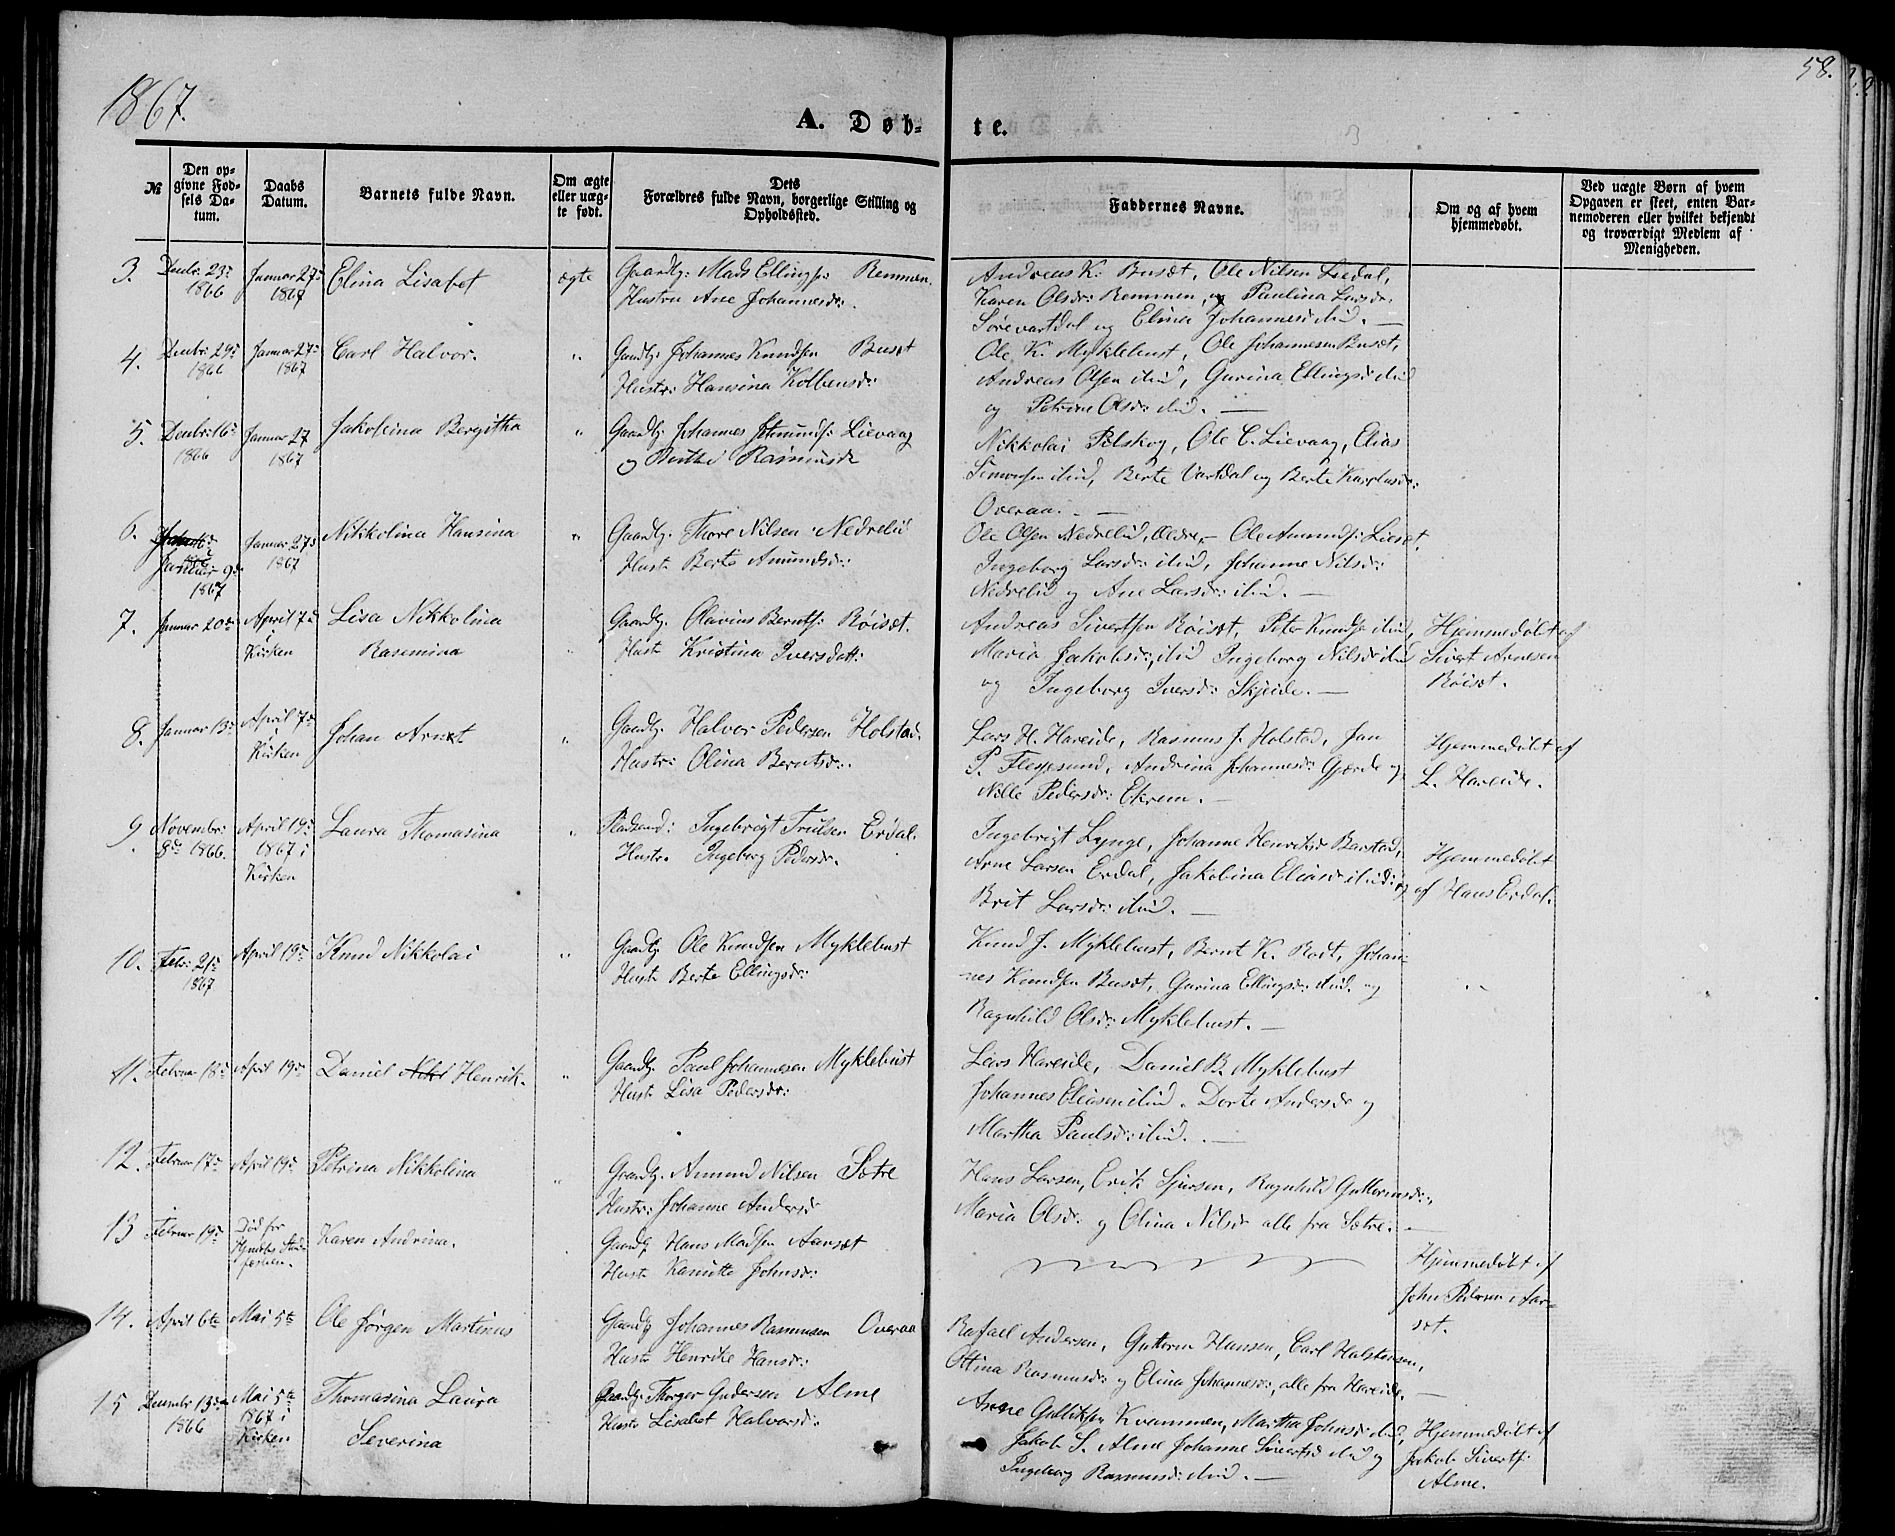 1867.
58.
A. Døb-
te.
№
Den op-
givne Fød-
sels Da-
tum.
Daabs
Datum.
Barnets fulde Navn.
Om ægte
eller uæg-
te født.
Dets
Forældres fulde Navn, borgerlige Stilling og
Opholdssted.
Faddernes Navne.
Om og af hvem
hjemmedøbt.
Ved uægte Børn af hvem
Opgaven er skeet, enten Bar-
nemoderen eller hvilket bekjendt
og troværdigt Medlem af
Menigheden.
3.
Decbr: 23de
1866
Januar 27de
1867
Elina Lisabet
ægte
Gaardbr: Mads Ellingsen: Remmen.
Hustru Ane Johannesdr:
Andreas K. Busæt, Ole Nilsen Liedal,
Karen Olsdr: Remmen, og Paulina Larsdr:
Sørevartdal og Elina Johannesdr ibid. —
4.
Decbr: 29de
1866
Januar 27de
1867
Carl Halvor.
"
Gaardbr: Johannes Knudsen Busæt
Hustr: Hansina Kolbensdr:
Ole K. Myklebust, Ole Johannesen Busæt,
Andreas Olsen ibid, Gurina Ellingsdr ibid
og Petrine Olsdr: ibid. —
5.
Decbr: 16de
1866
Januar 27
1867
Jakobina Bergitha
"
Gaardbr: Johannes Lievaag
og Berthe Rasmusdr
Nikkolai Pilskog, Ole C. Lievaag, Elias
Simonsen ibid, Berte Vartdal og Berte
Overaa. —
6.
Januar 9de
1867
Januar 27de
1867
Nikkolina Hansina
"
Gaardbr: Thore Nilsen Nedrelid
Hust: Berte Amundsdr:
Ole Olsen Nedrelid, Ole Amunds: Liesæt,
Ingeborg Larsdr: ibid, Johanne Nilsdr:
Nedrelid og Ane Larsdr: ibid. —
7.
Januar 20de
April 7de
i
Kirken
Lisa Nikkolina
Rasmina
Gaardbr: Olavius Bernts: Røisæt.
Hust: Kristina Iversdatt:
Andreas Sivertsen Røisæt, Peter Knudsen ibid,
Maria Jakobsdr: ibid Ingeborg Nilsdr ibid
og Ingeborg Iversdr: Skjeide. —
Hjemmedøbt af
Sivert Arnesen
Røisæt.
8.
Januar 13de
April 7de
i
Kirken
Johan Arnt
"
Gaardbr: Halvor Pedersen Holstad.
Hustr: Olina Berntsdr:
Lars H. Hareide, Rasmus J. Holstad, Jan
P. Flesjesund, Andrina Johannesdr: Gjerde og
Nille Pedersdr: Ekrem. —
Hjemmedøbt af
L. Hareide.
9.
Novembr:
8de 1866.
April 19de
1867 i
Kirken
Laura Thomasina
"
Pladsmd: Ingebrigt Trulsen Erdal.
Hustr: Ingeborg Pedersdr.
Ingebrigt Lynge, Johanne Henriksdr Barstad,
Arne Larsen Erdal, Jakobina Eliasdr ibid og
Brit Larsdr: ibid. —
Hjemmedøbt
af Hans Erdal.
10.
Febr: 21de
1867
April 19de
Knud Nikkolai
"
Gaardbr Ole Knudsen Myklebust
Hustr Berte Ellingsdr:
Knud J. Myklebust, Bernt K. Rødt, Johan-
nes Knudsen Busæt, Gurina Ellingsdr: ibid. og
Ragnhild Olsdr: Myklebust. —
"
11.
Februar 18de
April 19de
Daniel Henrik.
"
Gaardbr Paul Johannesen Myklebust
Hust: Lisa Pedersdr:
Lars Hareide, Daniel B. Myklebust
Johannes Eliasen ibid. Dorte Andersdr og
Martha Paulsdr: ibid. —
12.
Februar 17de
April 19de
Petrina Nikkolina
"
Gaardbr: Amund Nilsen Sætre
Hustr: Johanne Andersdr
Hans Larsen, Erik Sjursen, Ragnhild Guttormsdr:,
Maria Olsdr: og Olina Nilsdr alle fra Sætre. —
13
Februar 19de
Død før
Hjmdbs Stad-
fæstelsen.
Karen Andrina.
Gaardbr Hans Madsen Aarsæt
Hust: Johnsdr:
Hjemmedøbt af
John Pedersen Aar-
sæt.
14.
April 6te
Mai 5te
Ole Jørgen Martinus
Gaardbr Johannes Rasmusen Overaa
Hustr Henrike Hansdr:
Rafael Andersen, Guttorm Hansen, Carl Halstensen,
Oltina Rasmusdr: og Elina Johannesdr:, alle fra Hareide. —
15
Decembr 13de
1866
Mai 5te
1867 i
Kirken
Thomasina Laura
Severina
Gaardbr: Thorger Gudersen Alme
Hustr Lisabet Halvorsdr:
Arne Gulliksen Kvammen, Martha Johnsdr ibid,
Jakob S. Alme Johanne Sivertsdr ibid og
Ingeborg Rasmusdr: ibid. —
Hjemmedøbt af
Jakob Siverts:
Alme.